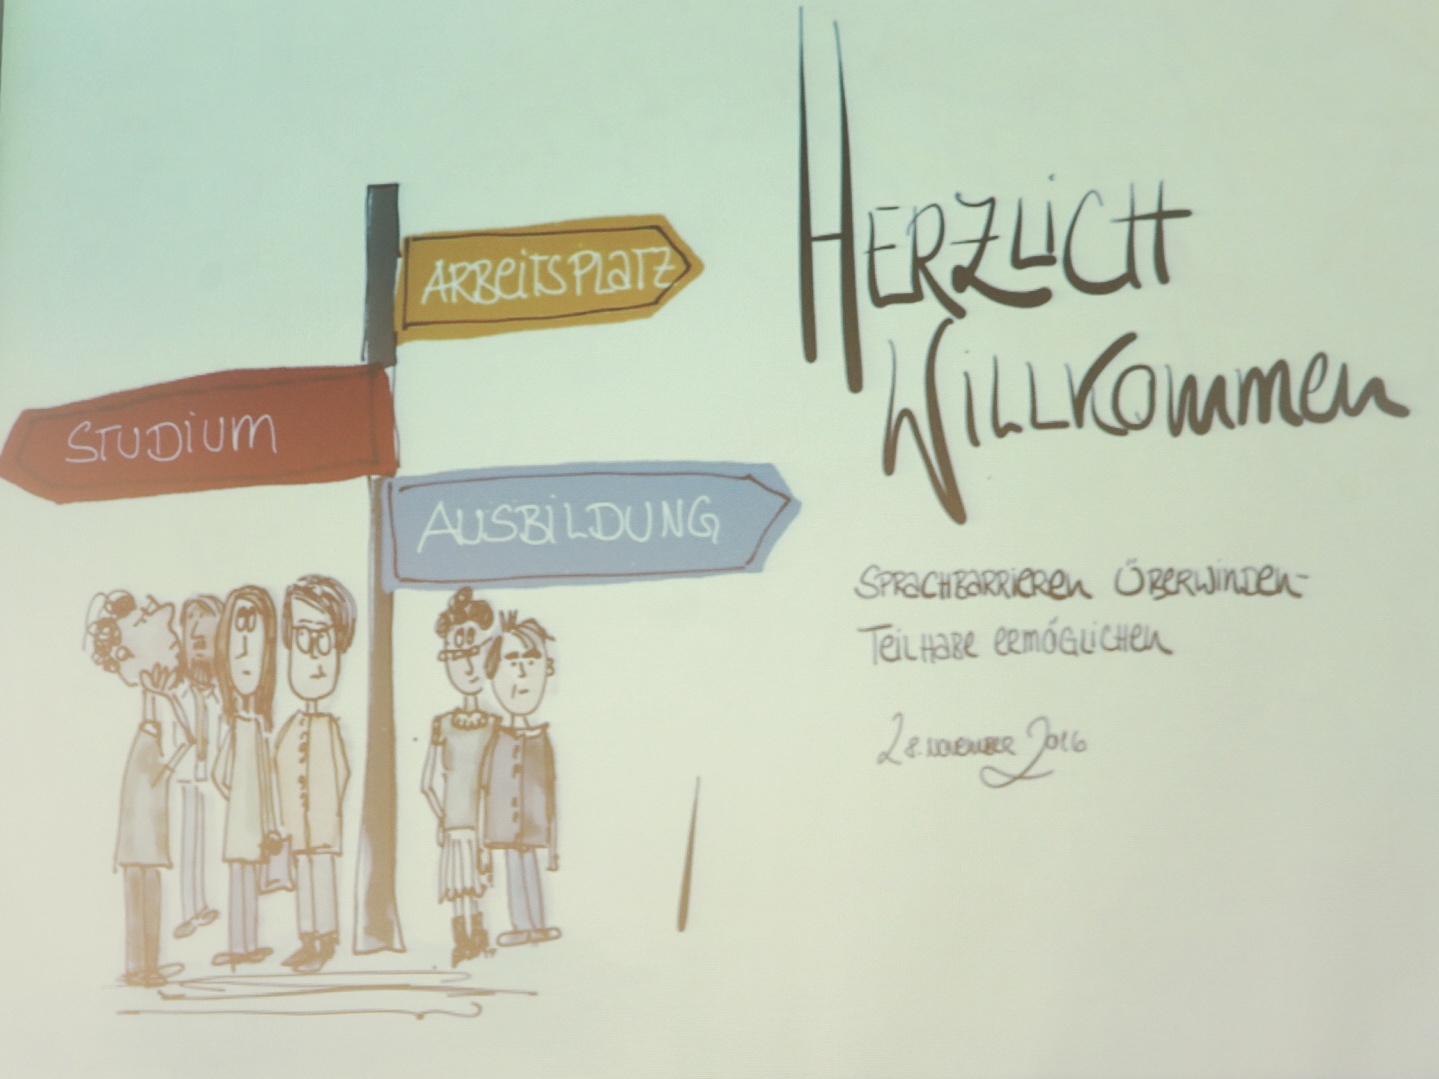 ARBEITSPLATZ
STUDIUM
AUSBILDUNG
HERZLICH
WILLKOMMEN
SPRACHBARRIEREN ÜBERWINDEN-
TEILHABE ERMÖGLICHEN
28. NOVEMBER 2016